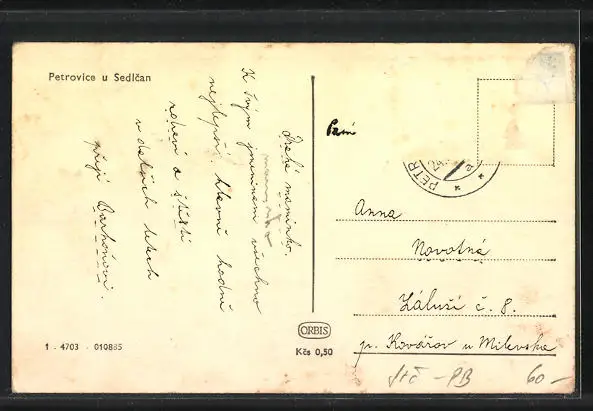 Petrovice u Sedlčan
Drahá maminko.
K Tvým jmeninám všechno
nejlepší, hlavně hodně
zdraví a štěstí
v dalších letech
přejí Barhoňovi.
Paní
PETR
Anna
Novotná
Záluží č. 8.
p. Kovářov u Milevska
ORBIS
Kčs 0,50
1 - 4703 - 010885
StČ - PB 60.-